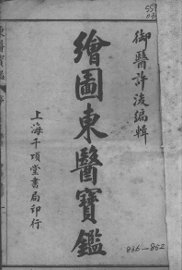 御醫許浚編輯
繪圖東醫寶鑑
上海千頃堂書局印行
836-852